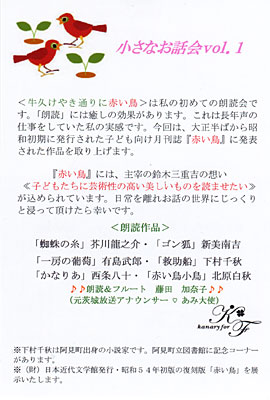 小さなお話会vol．1
＜牛久けやき通りに赤い鳥＞は私の初めての朗読会で
す。「朗読」には癒しの効果があります。これは長年声の
仕事をしていた私の実感です。今回は、大正半ばから昭
和初期に発行された子ども向け月刊誌『赤い鳥』に発表
された作品を取り上げます。
『赤い鳥』には、主宰の鈴木三重吉の想い
≪子どもたちに芸術性の高い美しいものを読ませたい≫
が込められています。日常を離れお話の世界にじっくり
と浸って頂けたら幸いです。
＜朗読作品＞
「蜘蛛の糸」芥川龍之介・「ゴン狐」新美南吉
「一房の葡萄」有島武郎・「救助船」下村千秋
「かなりあ」西条八十・「赤い鳥小鳥」北原白秋
♪♪朗読＆フルート　藤田　加奈子♪♪
（元茨城放送アナウンサー ♡ あみ大使）
K
kanary for F
※下村千秋は阿見町出身の小説家です。阿見町立図書館に記念コーナー
があります。
※（財）日本近代文学館発行・昭和５４年初版の復刻版「赤い鳥」を展
示いたします。